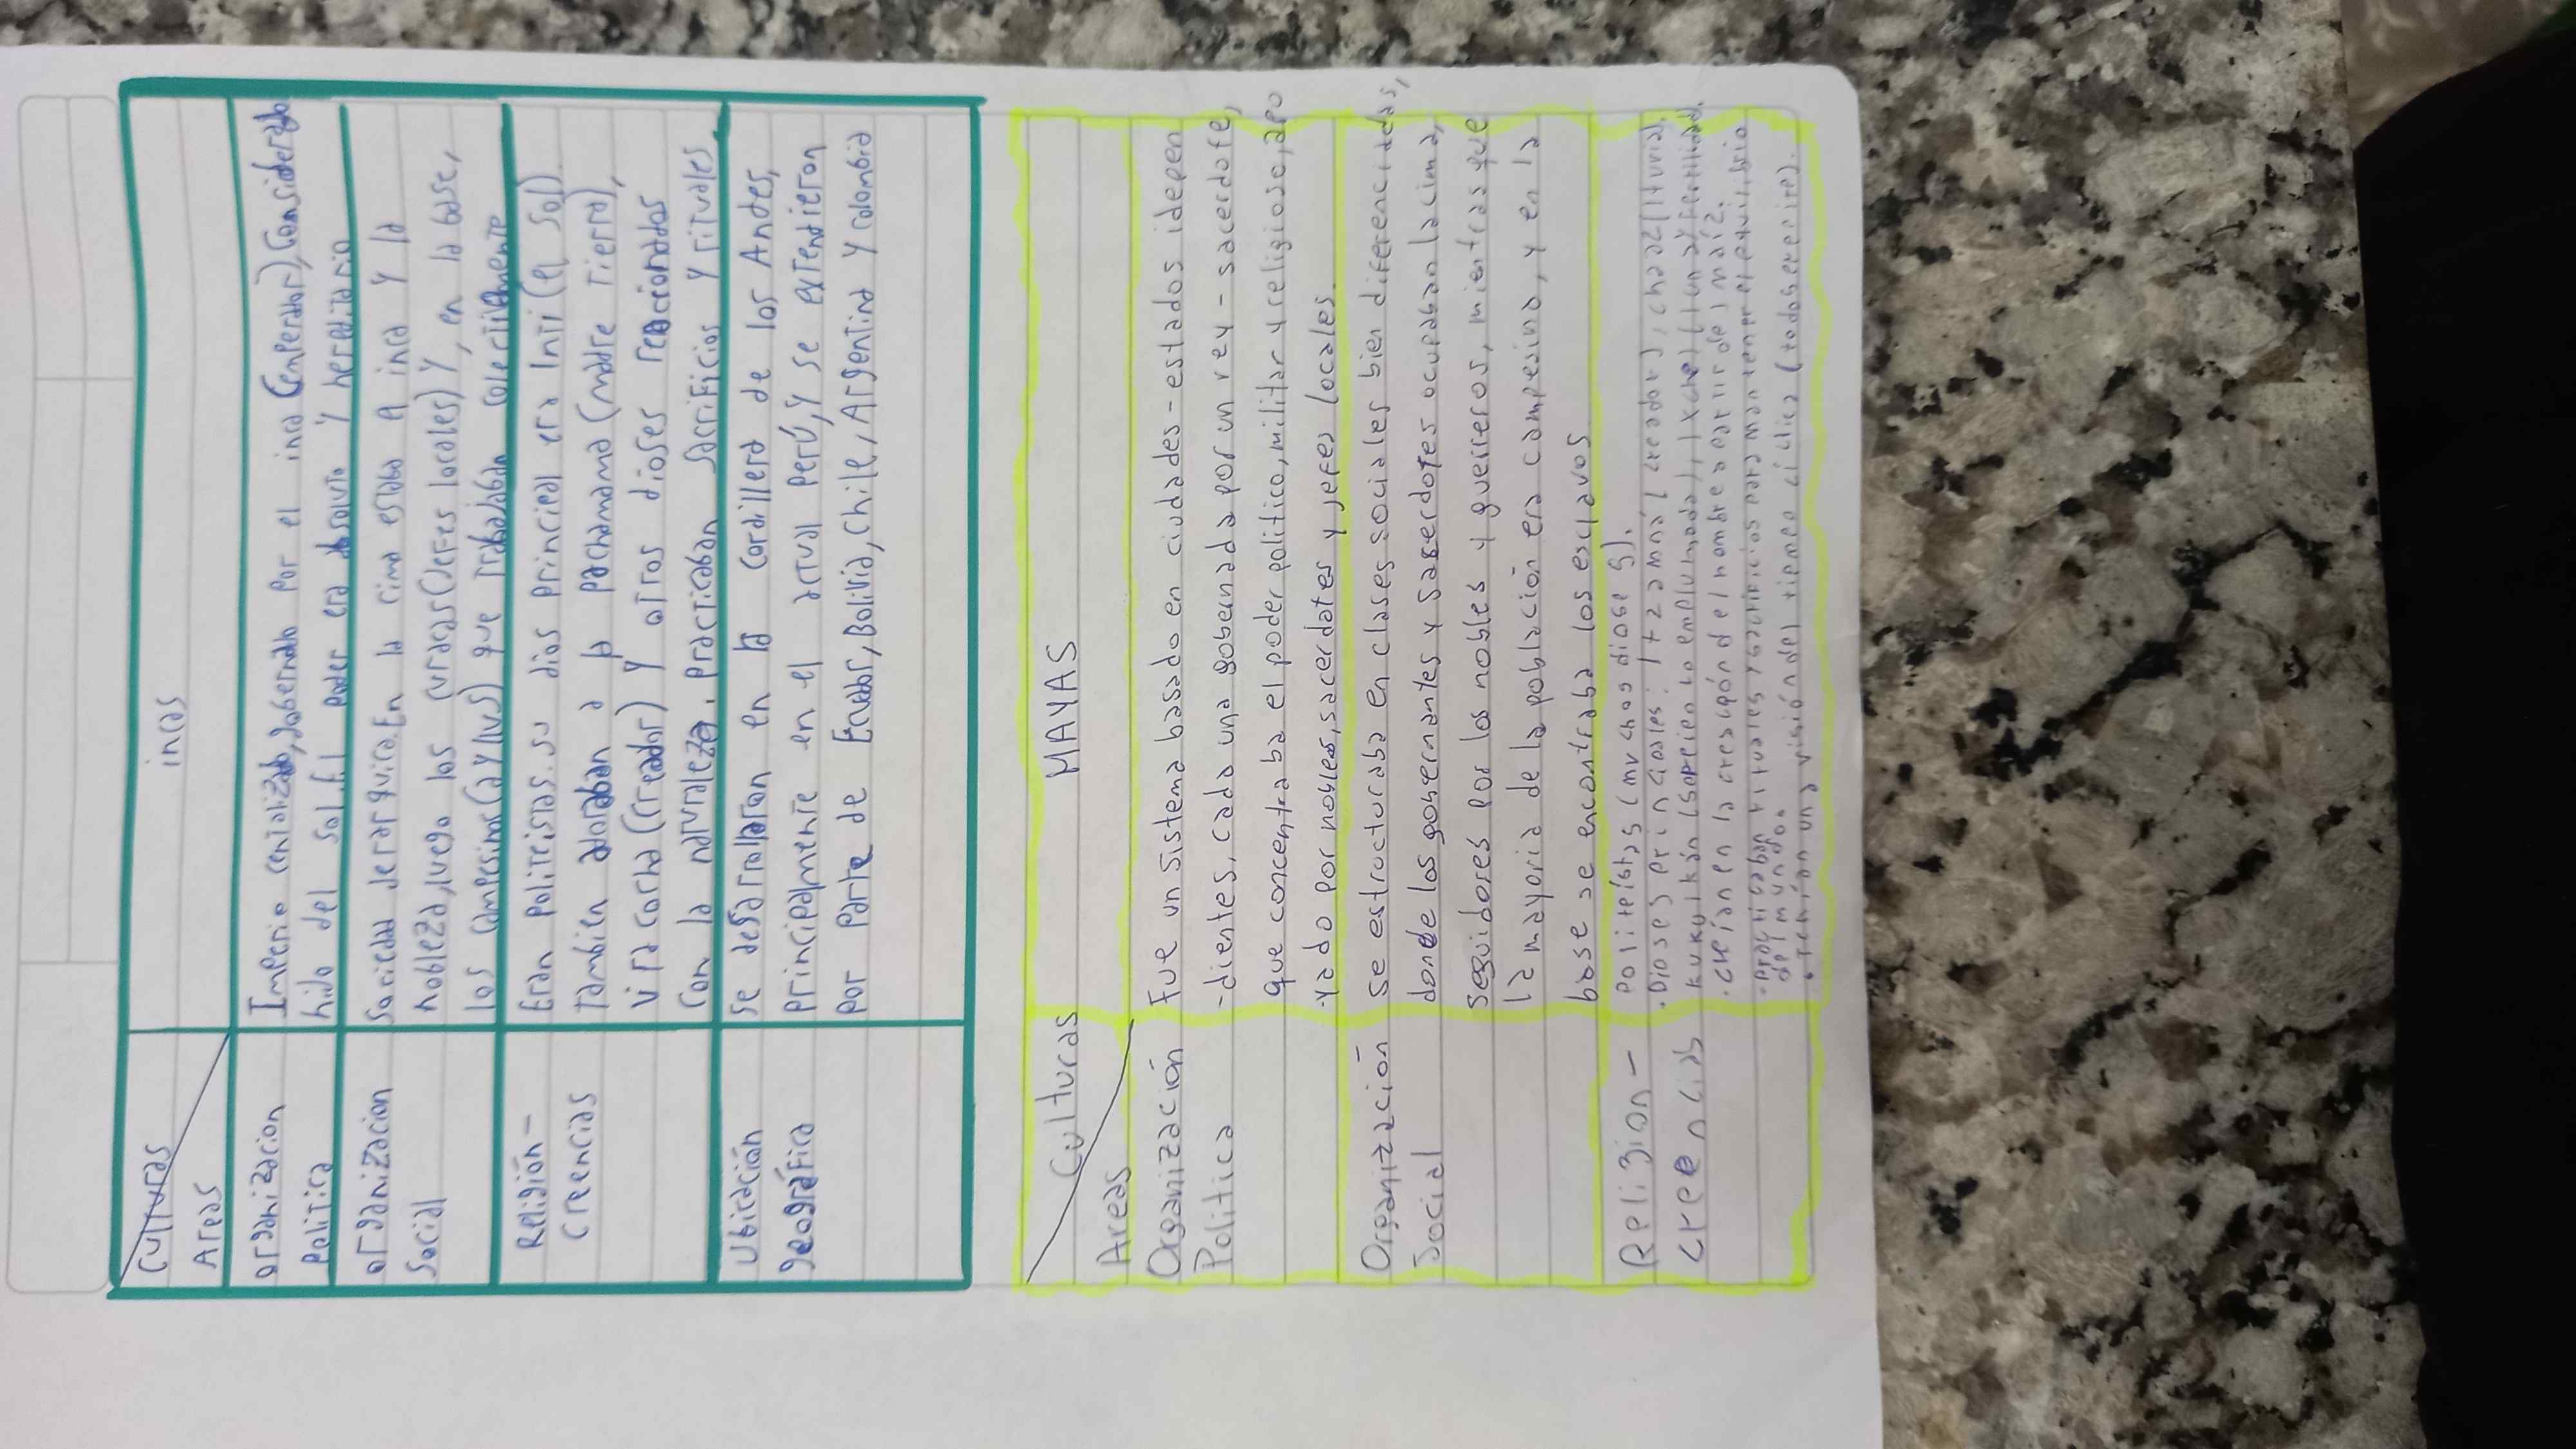 Culturas
Areas
incas
organizacion
politica
Imperio centalizado, gobernado por el inca (emperador), Considerado
hijo del sol. El poder era absoluto y hereditario
organizacion
social
Sociedad jerarquica. En la cima estaba el inca y la
nobleza, luego los curacas (Jefes locales) y, en la base,
los campesinos (ayllus) que trabajaban colectivamente
Religión -
Creencias
Eran politeistas. su dios principal era Inti (el sol).
Tambien adoraban a la pachamama (madre tierra),
Viracocha (Creador) y otros dioses relacionados
Con la naturaleza. practicaban sacrificios y rituales
Ubicación
geográfica
se desarrollaron en la cordillera de los Andes,
principalmente en el actual perú, y se extendieron
por parte de Ecuador, Bolivia, Chile, Argentina y colombia
Culturas
Areas
MAYAS
Organización
Politica
Fue un sistema basado en ciudades - estados idepen
-dientes, cada una gobernada por un rey - sacerdote,
que concentraba el poder politico, militar y religioso, apo
-yado por nobles, sacerdotes y jefes locales.
Organización
Social
Se estructuraba en clases sociales bien diferenciadas,
donde los gobernantes y sacerdotes ocupaban la cima,
seguidores por los nobles y guerreros, mientras que
la mayoria de la población era campesina, y en la
base se encontraba los esclavos
Religion -
creencias
Politeistas (muchos dioses).
·Dioses principales: Itzamná (creador), chaac (lluvia),
kukulkán (serpiente emplumada), Ixchel (luna y fertilidad.
·creían en la creación del hombre a partir del maíz.
·practicaban rituales y sacrificios para mantener el equilibrio
del mundo.
·Tenían una visión del tiempo cíclica (todo se repite).